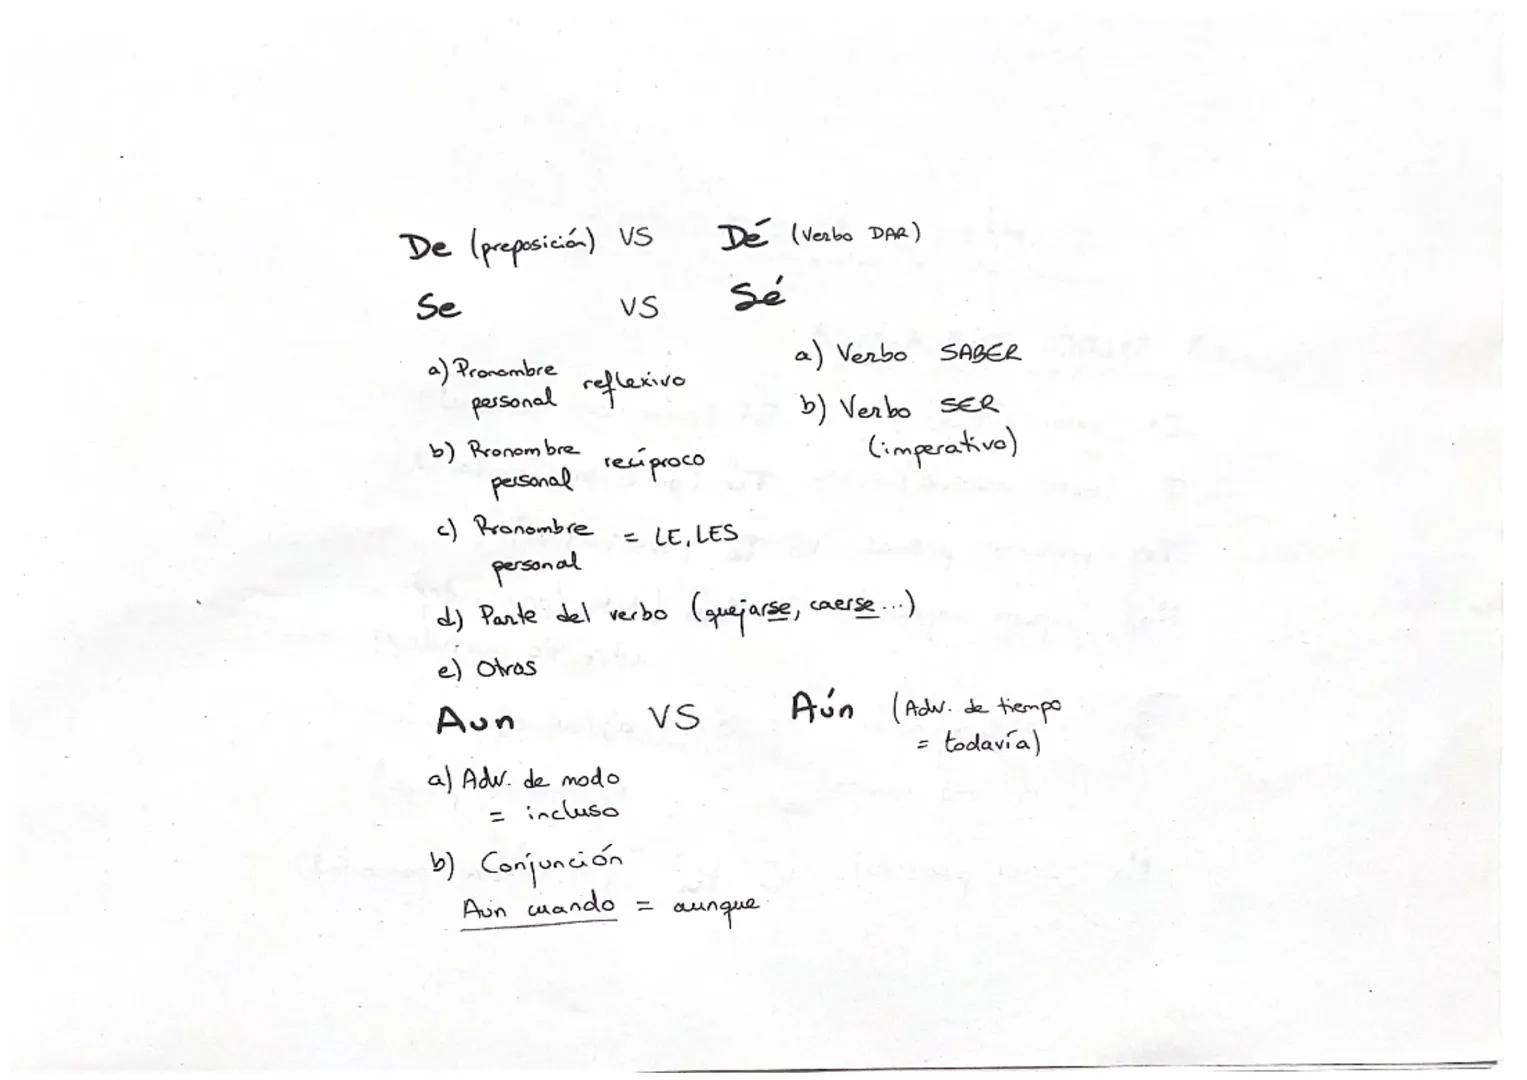 De (preposición) VS Dé (Verbo DAR)
Se VS Sé
a) Pronombre personal reflexivo
b) Pronombre personal recíproco
c) Pronombre personal = LE, LES
d) Parte del verbo (quejarse, caerse...)
e) Otros
a) Verbo SABER
b) Verbo SER
(imperativo)
Aun VS Aún (Adv. de tiempo
= todavía)
a) Adv. de modo
= incluso
b) Conjunción
Aun cuando = aunque